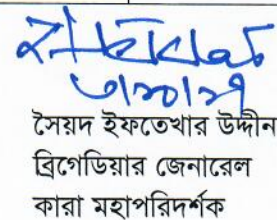 সৈয়দ ইফতেখার উদ্দীন
ব্রিগেডিয়ার জেনারেল
কারা মহাপরিদর্শক